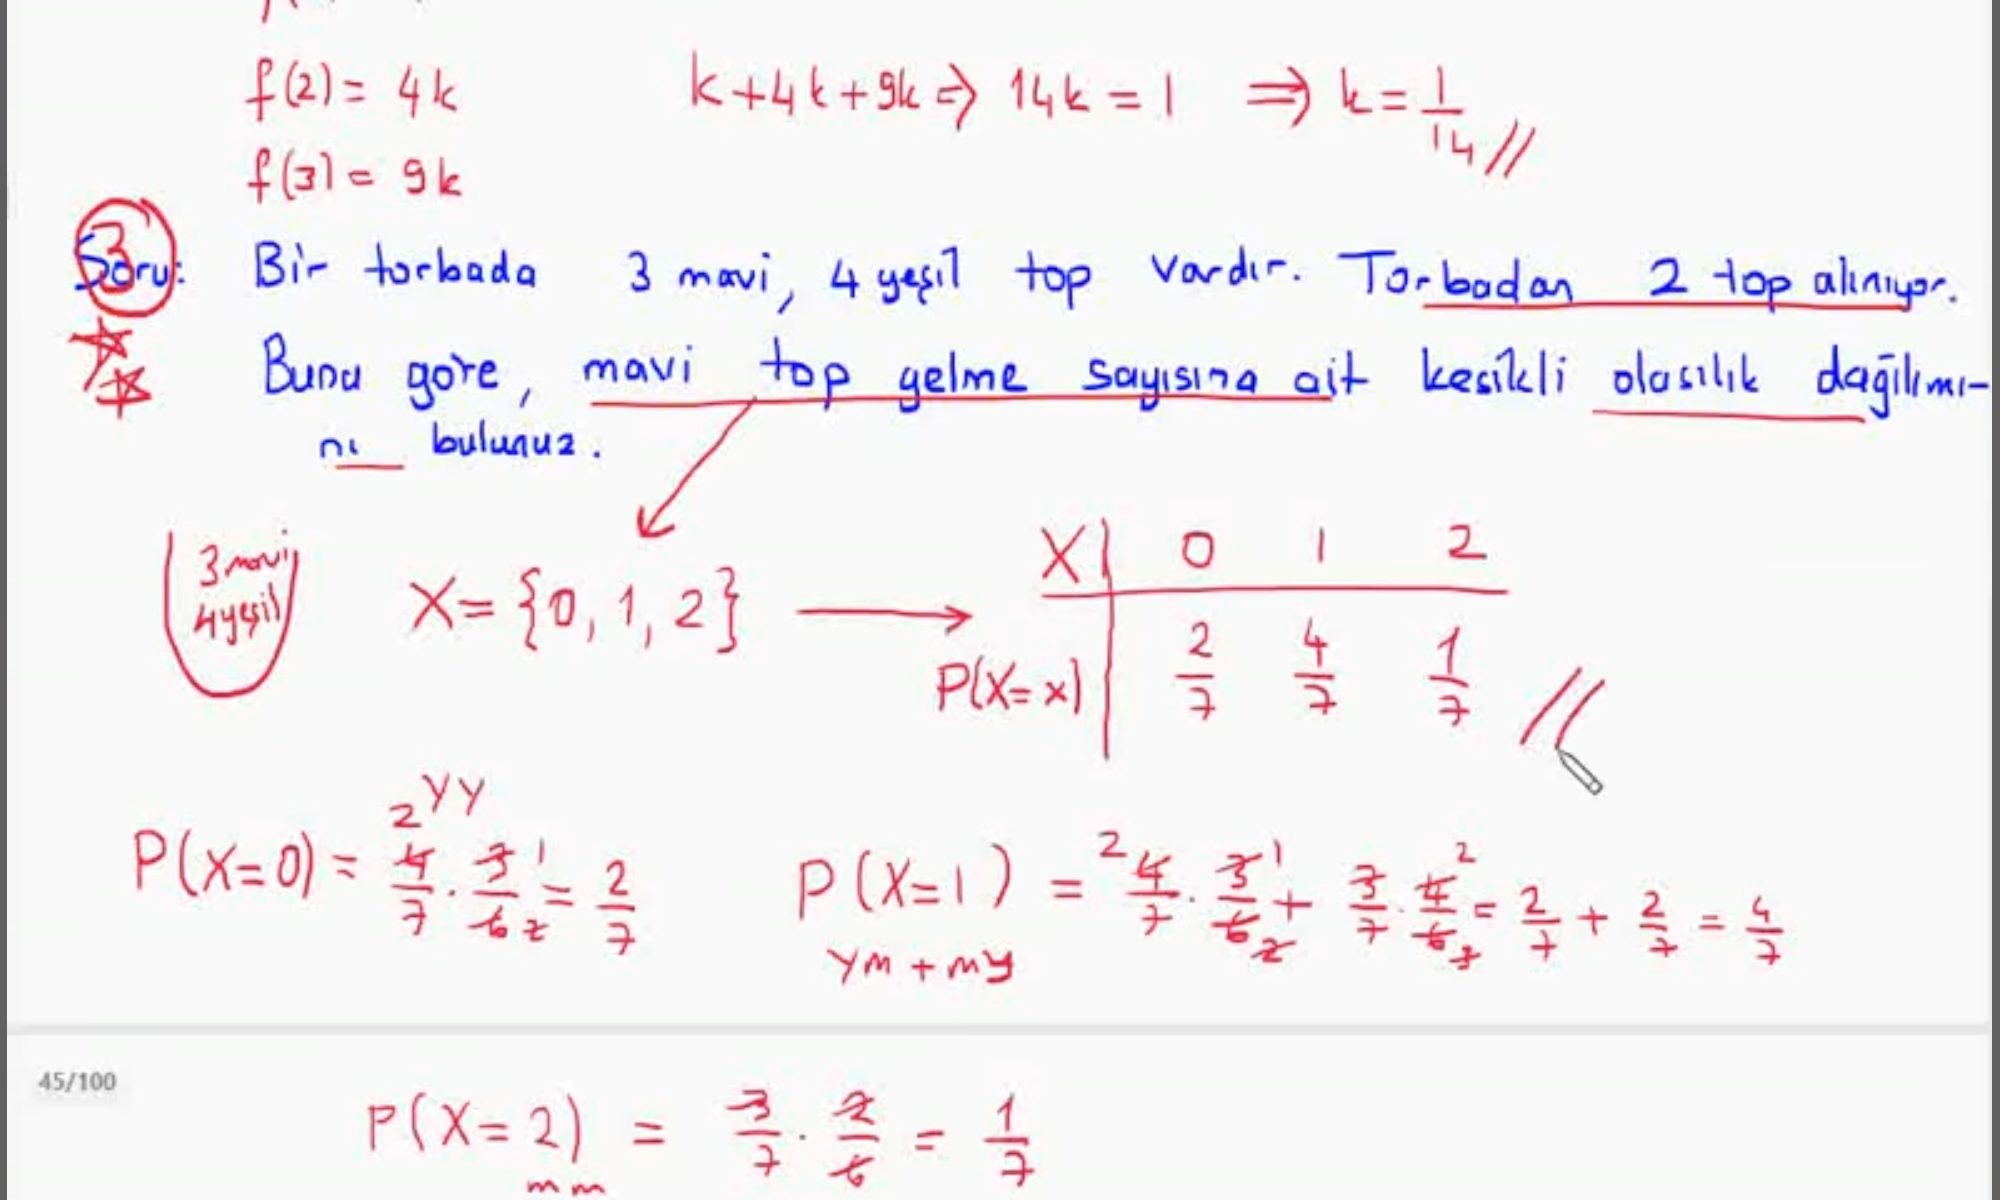 f(2) = 4k k+4k+9k ⇒ 14k = 1 ⇒ k = 1/14 //
f(3) = 9k
3
Soru: Bir torbada 3 mavi, 4 yeşil top vardır. Torbadan 2 top alınıyor.
Buna göre, mavi top gelme sayısına ait kesikli olasılık dağılımı-
nı bulunuz.
3 mavi
4 yeşil
X = {0, 1, 2} →
X | 0 1 2
P(X=x) | 2/7 4/7 1/7 //
YY
P(X=0) = 4/7 · 3/6 = 2/7
P(X=1) = 4/7 · 3/6 + 3/7 · 4/6 = 2/7 + 2/7 = 4/7
ym + my
45/100
P(X=2) = 3/7 · 2/6 = 1/7
mm